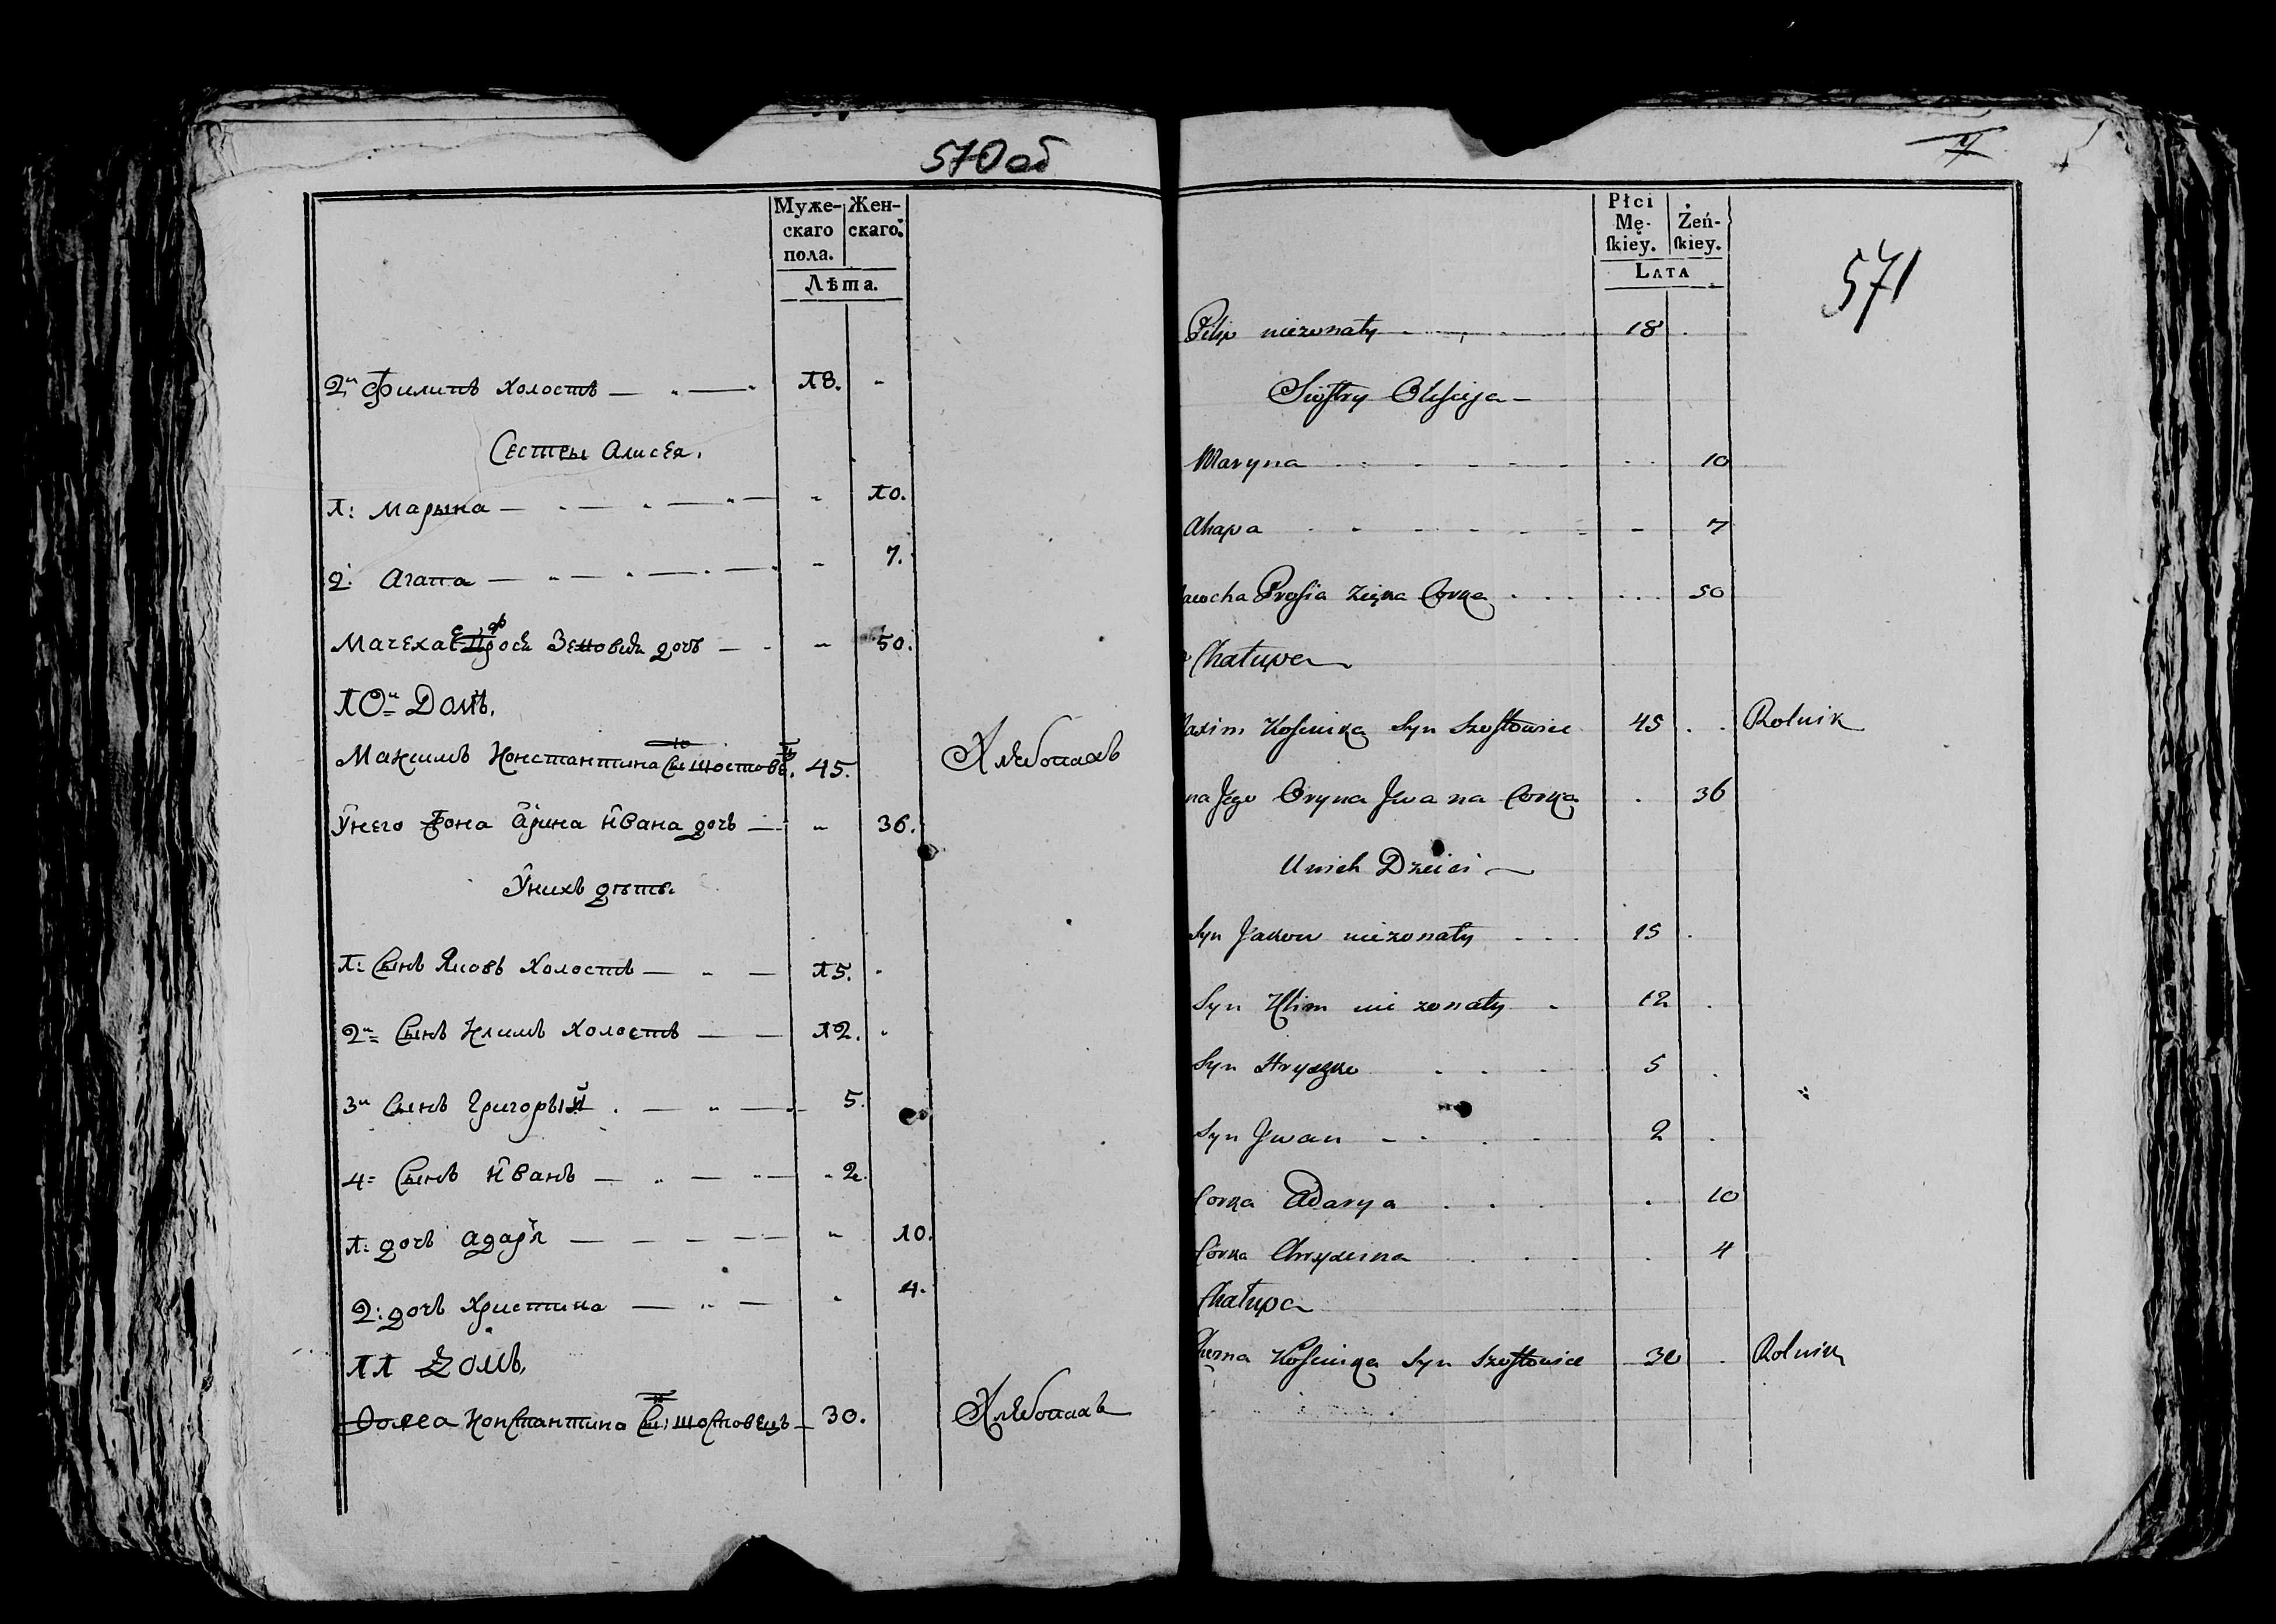 570 об
Муже-
скаго
пола.
Жен-
скаго.
Лѣта.
2й Филипъ холостъ — 18. -
Сестры Алисея.
1: Марына — - 10.
2: Агапа — - 7.
Мачеха Ефрося Зеновия дочь — - 50.
10й Домъ.
Максимъ Константина Сы: Шостовецъ. 45. Хлебопахъ
Унего Жона Арина Ивана дочь — - 36.
Унихъ дѣти.
1: Сынъ Яковъ Холостъ — 15. -
2й Сынъ Климъ Холостъ — 12. -
3й Сынъ Григорый — 5.
4: Сынъ Иванъ — 2.
1: дочь Адаря — - 10.
2: дочь Христина — - 4.
11 Домъ.
Хома Константина Сы: Шостовецъ — 30. Хлебопахъ
571
Płci
Mę-
ſkiey.
Żeń-
ſkiey.
LATA
Filip niezonaty 18 .
Siostry Olisieja
Maryna 10
Ahapa 7
acocha Prosia Corka 50
Chałupa
axim Kościuka Syn Szostowiec 45 . Rolnik
na Jego Oryna Jwana Corka . 36
Unich Dzieci
Syn Jakow niezonaty 15 .
Syn Klim nie zonaty 12 .
Syn Hryszko 5 .
Syn Jwan 2 .
Corka Adarya . 10
Córka Chrystina . 4
Chałupa
Kościuka Syn Szostowiec 30 . Rolnik